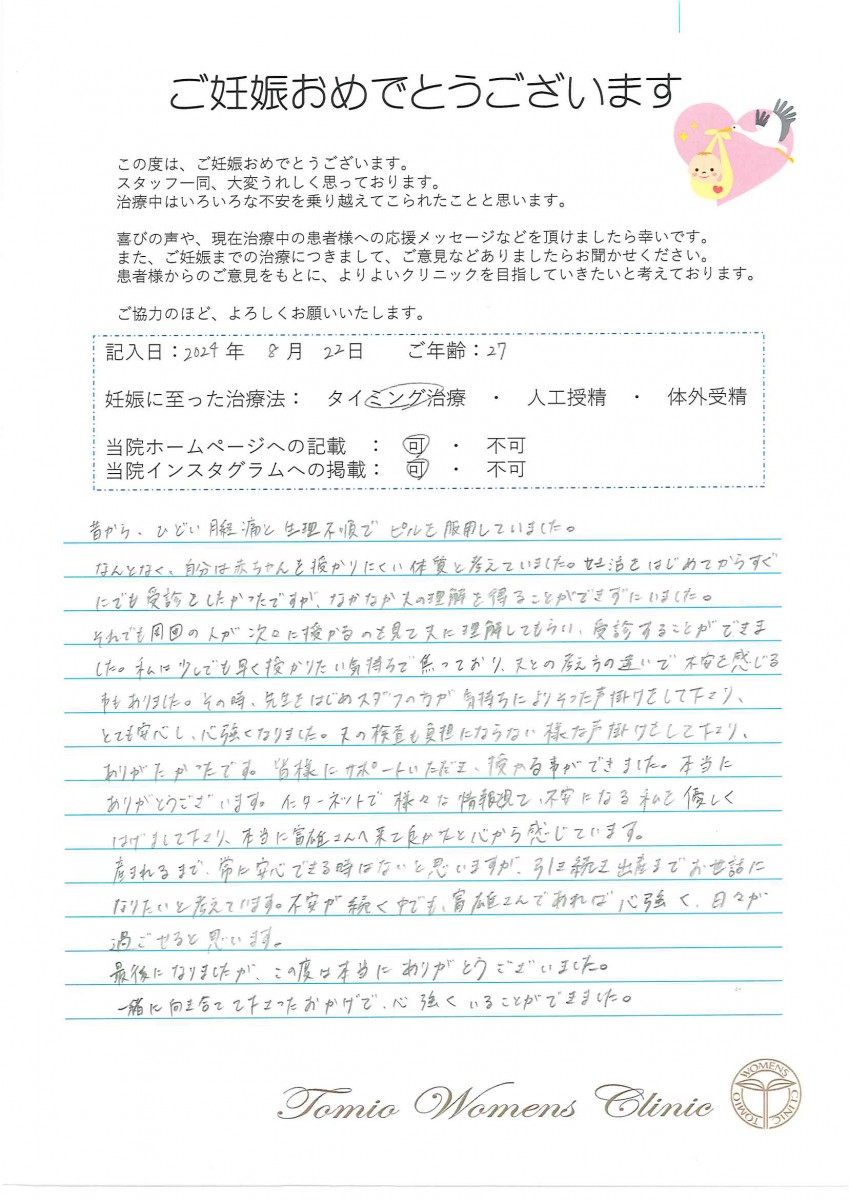 ご妊娠おめでとうございます
この度は、ご妊娠おめでとうございます。
スタッフ一同、大変うれしく思っております。
治療中はいろいろな不安を乗り越えてこられたことと思います。
喜びの声や、現在治療中の患者様への応援メッセージなどを頂けましたら幸いです。
また、ご妊娠までの治療につきまして、ご意見などありましたらお聞かせください。
患者様からのご意見をもとに、よりよいクリニックを目指していきたいと考えております。
ご協力のほど、よろしくお願いいたします。
記入日：2024年 8月 22日 ご年齢：27
妊娠に至った治療法： タイミング治療 ・ 人工授精 ・ 体外受精
当院ホームページへの記載 ： 可 ・ 不可
当院インスタグラムへの掲載： 可 ・ 不可
昔から、ひどい月経痛と生理不順でピルを服用していました。
なんとなく、自分は赤ちゃんを授かりにくい体質と考えていました。妊活をはじめてからすぐ
にでも受診をしたかったですが、なかなか夫の理解を得ることができずにいました。
それでも周囲の人が次々に授かるのを見て夫に理解してもらい、受診することができま
した。私は少しでも早く授かりたい気持ちで焦っており、夫との考え方の違いで不安を感じる
事もありました。その時、先生をはじめスタッフの方が気持ちによりそった声掛けをして下さり、
とても安心し、心強くなりました。夫の検査も負担にならない様な声掛けをして下さり、
ありがたかったです。皆様にサポートいただき、授かる事ができました。本当に
ありがとうございます。インターネットで様々な情報視て、不安になる私を優しく
はげまして下さり、本当に富雄さんへ来て良かったと心から感じています。
産まれるまで、常に安心できる時はないと思いますが、引き続き出産までお世話に
なりたいと考えています。不安が続く中でも、富雄さんであれば心強く、日々が
過ごせると思います。
最後になりましたが、この度は本当にありがとうございました。
一緒に向き合って下さったおかげで、心強くいることができました。
Tomio Womens Clinic
TOMIO WOMENS CLINIC